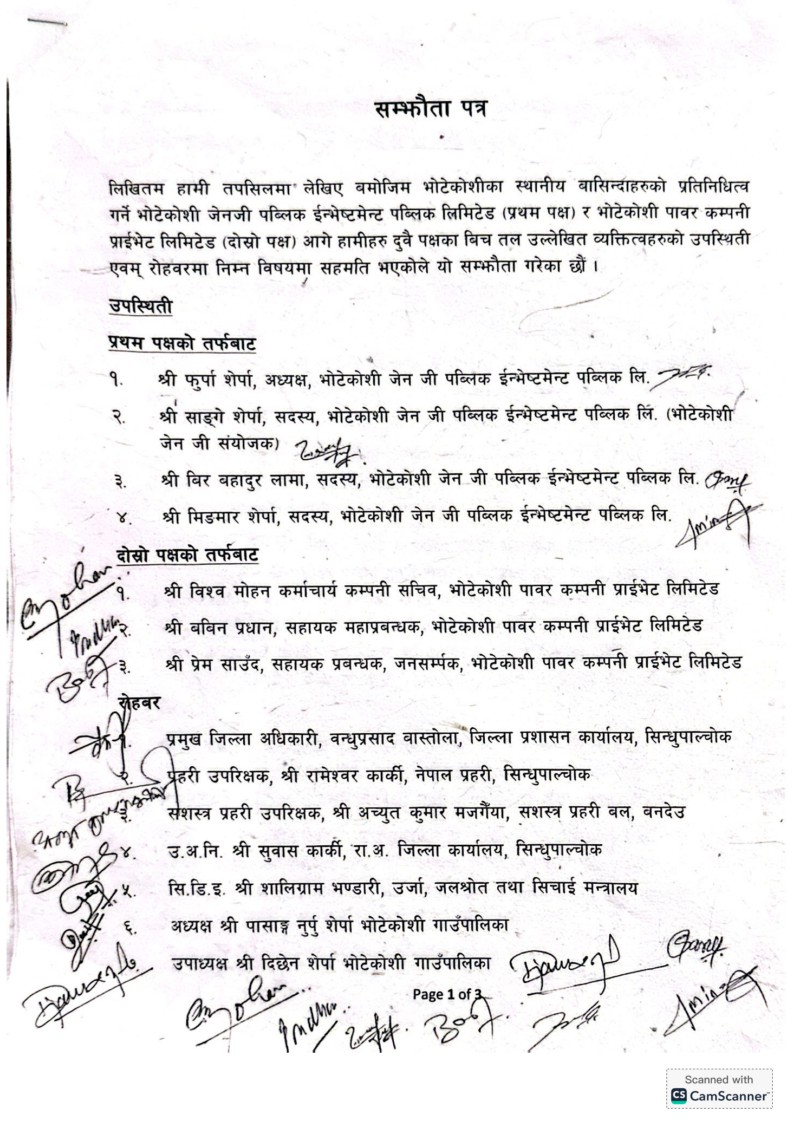 सम्झौता पत्र
लिखितम हामी तपसिलमा लेखिए बमोजिम भोटेकोशीका स्थानीय बासिन्दाहरुको प्रतिनिधित्व
गर्ने भोटेकोशी जेनजी पब्लिक ईन्भेष्टमेन्ट पब्लिक लिमिटेड (प्रथम पक्ष) र भोटेकोशी पावर कम्पनी
प्राईभेट लिमिटेड (दोस्रो पक्ष) आगे हामीहरु दुवै पक्षका बिच तल उल्लेखित व्यक्तित्वहरुको उपस्थिती
एवम् रोहवरमा निम्न विषयमा सहमति भएकोले यो सम्झौता गरेका छौं ।
उपस्थिती
प्रथम पक्षको तर्फबाट
१. श्री फुर्पा शेर्पा, अध्यक्ष, भोटेकोशी जेन जी पब्लिक ईन्भेष्टमेन्ट पब्लिक लि.
२. श्री साङ्गे शेर्पा, सदस्य, भोटेकोशी जेन जी पब्लिक ईन्भेष्टमेन्ट पब्लिक लि. (भोटेकोशी
जेन जी संयोजक)
३. श्री बिर बहादुर लामा, सदस्य, भोटेकोशी जेन जी पब्लिक ईन्भेष्टमेन्ट पब्लिक लि.
४. श्री मिडमार शेर्पा, सदस्य, भोटेकोशी जेन जी पब्लिक ईन्भेष्टमेन्ट पब्लिक लि.
दोस्रो पक्षको तर्फबाट
१. श्री विश्व मोहन कर्माचार्य कम्पनी सचिव, भोटेकोशी पावर कम्पनी प्राईभेट लिमिटेड
२. श्री बबिन प्रधान, सहायक महाप्रबन्धक, भोटेकोशी पावर कम्पनी प्राईभेट लिमिटेड
३. श्री प्रेम साउँद, सहायक प्रवन्धक, जनसर्म्पक, भोटेकोशी पावर कम्पनी प्राईभेट लिमिटेड
रोहबर
प्रमुख जिल्ला अधिकारी, वन्धुप्रसाद वास्तोला, जिल्ला प्रशासन कार्यालय, सिन्धुपाल्चोक
२. प्रहरी उपरिक्षक, श्री रामेश्वर कार्की, नेपाल प्रहरी, सिन्धुपाल्चोक
३. सशस्त्र प्रहरी उपरिक्षक, श्री अच्युत कुमार मजगैंया, सशस्त्र प्रहरी बल, बनदेउ
४. उ.अ.नि. श्री सुवास कार्की, रा.अ. जिल्ला कार्यालय, सिन्धुपाल्चोक
५. सि.डि.इ. श्री शालिग्राम भण्डारी, उर्जा, जलश्रोत तथा सिचाई मन्त्रालय
६. अध्यक्ष श्री पासाङ्ग नुर्पु शेर्पा भोटेकोशी गाउँपालिका
उपाध्यक्ष श्री दिछेन शेर्पा भोटेकोशी गाउँपालिका
Page 1 of 3
Scanned with
CS CamScanner